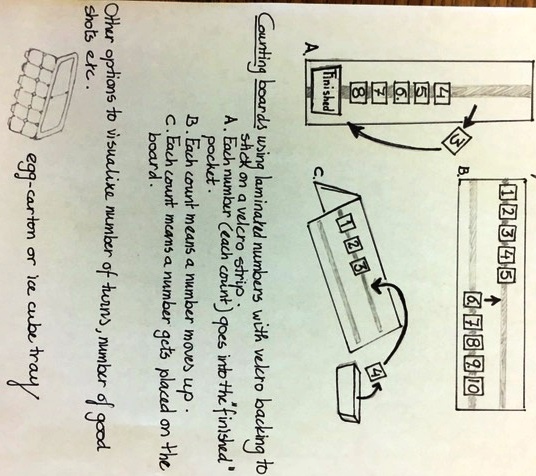 A.
4
5
6.
7
8
Finished
3
B.
1 2 3 4 5
6 7 8 9 10
C.
1 2 3
4
Counting boards using laminated numbers with velcro backing to
stick on a velcro strip.
A. Each number (each count) goes into the "finished"
pocket.
B. Each count means a number moves up.
C. Each count means a number gets placed on the
board.
Other options to visualize number of turns, number of good
shots etc.
egg-carton or ice cube tray